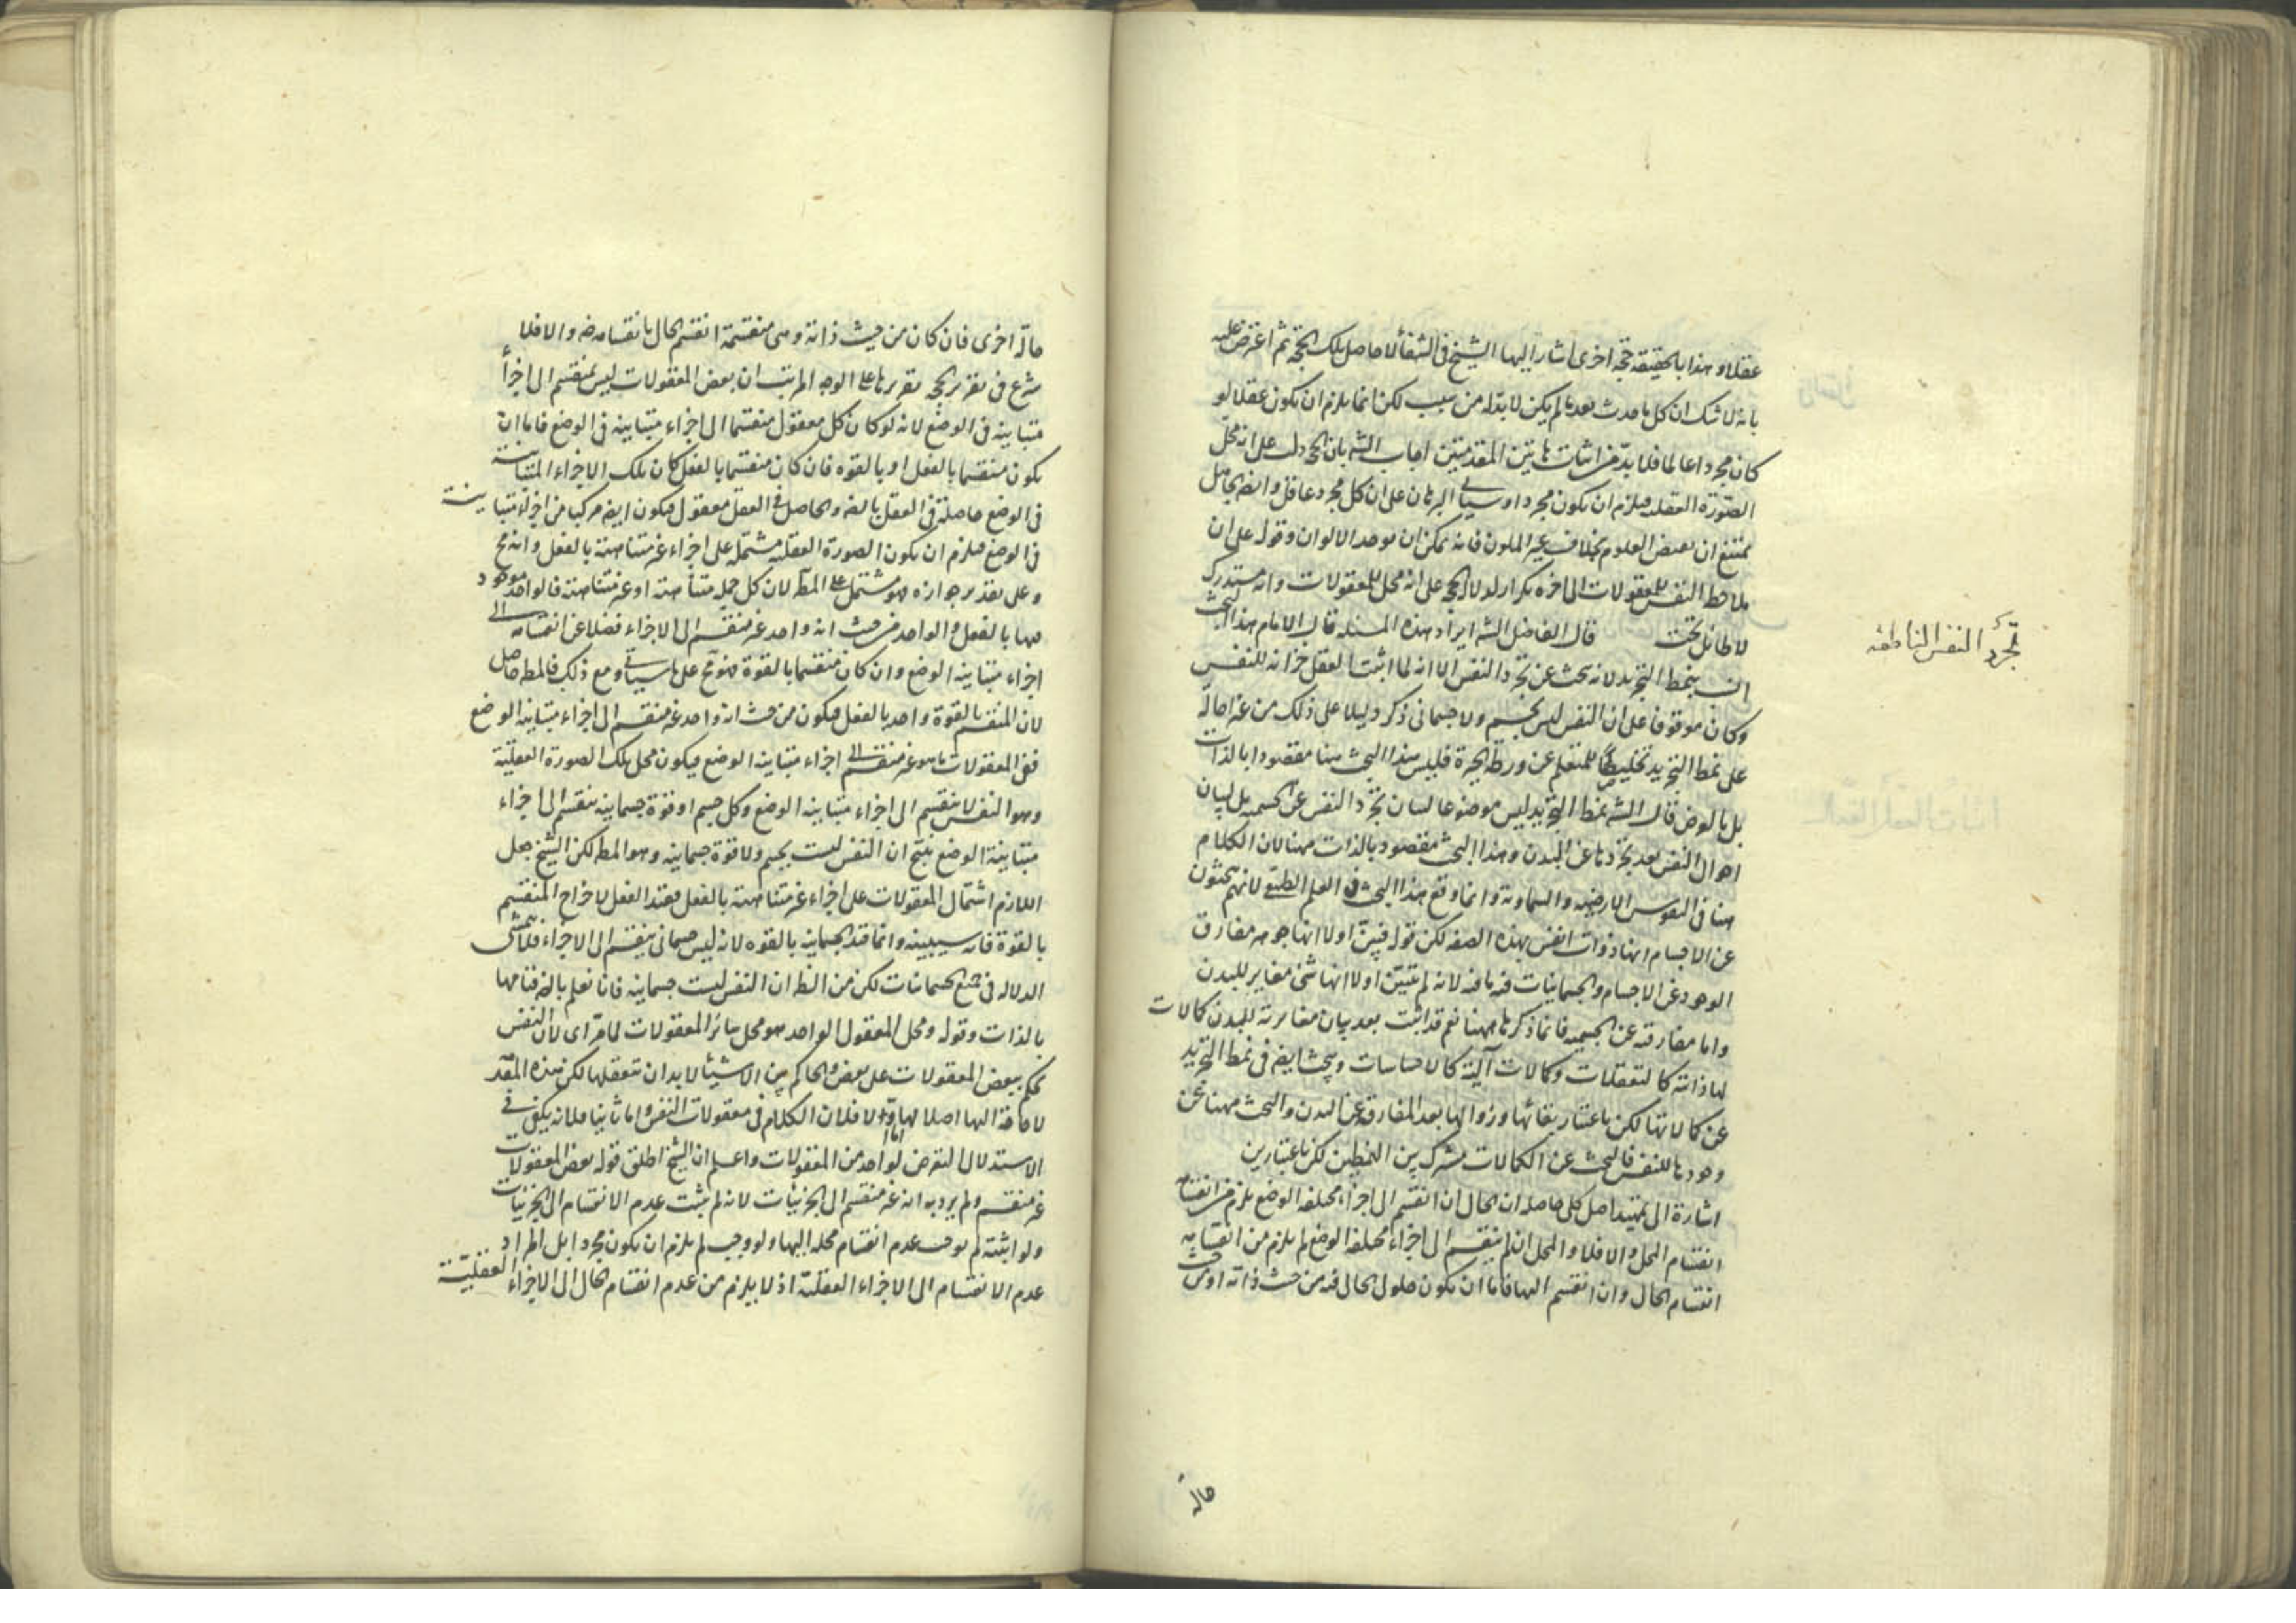 عقلا و هذا بالحقيقة حجة اخرى اشار اليها الشيخ فى الشفأ لا حاصل تلك الحجة ثم اعترض عليه
بانه لا شك ان كل ما حدث بعد ما لم يكن لا بد له من سبب لكن انما يلزم ان يكون عقلا لو
كان مجردا عالما فلا بد من اثبات هاتين المقدمتين اجاب الشه بان الحجه دلت على انه محل
الصورة العقلية فيلزم ان يكون مجردا و سياتى البرهان على ان كل مجرد عاقل و ايضا الجاهل
يمتنع ان يفيض العلوم بخلاف غير الملون فانه يمكن ان يوجد الالوان و قوله على ان
ملاحظة النفس للمعقولات الى اخره تكرار لدلالة الحجه على انه محل للمعقولات و انه مستدرك
لا طائل تحته قال الفاضل الشه ايراد هذه المسئله قال الامام هذا البحث
انسب بنمط التجريد لانه بحث عن تجرد النفس الا انه لما اثبت العقل خزانه للنفس
و كان موقوفا على ان النفس ليس بجسم و لا جسمانى ذكر دليلا على ذلك من غير احالة
على نمط التجريد تخليصا للمتعلم عن ورطة الحيرة فليس هذا البحث هنا مقصودا بالذات
بل بالعرض قال الشه نمط التجريد ليس موضوعا لبيان تجرد النفس عن الجسميه بل لبيان
احوال النفس بعد تجردها عن البدن و هذا البحث مقصود بالذات ههنا لان الكلام
هنا فى النفوس الارضيه و السماوية و انما وقع هذا البحث فى العلم الطبيعى لانهم يبحثون
عن الاجسام انها ذوات انفس بهذه الصفه لكن قوله فبين اولا انها جوهر مفارق
الوجود عن الاجسام و الجسمانيات فيه ما فيه لانه لم يتبين اولا انها شئ مغاير للبدن
و اما مفارقته عن الجسميه فانما ذكرها ههنا نعم قد اثبت بعد بيان مغايرته للبدن كمالات
لها ذاتية كالتعقلات و كمالات آلية كالاحساسات و يبحث ايضا فى نمط التجريد
عن كمالاتها لكن باعتبار بقائها و زوالها بعد المفارقة عن البدن و البحث ههنا عن
وجودها للنفس فالبحث عن الكمالات مشترك بين النمطين لكن باعتبارين
اشارة الى تمهيد اصل كلى حاصله ان الحال ان انقسم الى اجزاء مختلفة الوضع يلزم من انقسامه
انقسام المحل و الا فلا و المحل ان لم ينقسم الى اجزاء مختلفة الوضع لم يلزم من انقسامه
انقسام الحال و ان انقسم اليها فاما ان يكون حلول الحال فيه من حيث ذاته او من حيث
حالة
تجرد النفس الناطقه
حالة اخرى فان كان من حيث ذاته و هى منقسمة انقسم الحال بانقسامه ضرورة و الا فلا
شرع فى تقرير الحجه تقريرها على الوجه المرتب ان بعض المعقولات ليس بمنقسم الى اجزأ
متباينه فى الوضع لانه لو كان كل معقول منقسما الى اجزاء متباينه فى الوضع فاما ان
يكون منقسما بالفعل او بالقوه فان كان منقسما بالفعل كان تلك الاجزاء المتباينة
فى الوضع حاصلة فى العقل بالضرورة و الحاصل فى العقل معقول فيكون ايضا مركبا من اجزاء متباينة
فى الوضع فيلزم ان يكون الصورة العقليه مشتمله على اجزاء غير متناهية بالفعل و انه مح
و على تقدير جوازه فهو مشتمل على المط لان كل جملة متناهية او غير متناهية فالواحد موجود
فيها بالفعل و الواحد من حيث انه واحد غير منقسم الى الاجزاء فضلا عن انقسامه الى
اجزاء متباينه الوضع و ان كان منقسما بالقوة فهو مح على ما سياتى و مع ذلك فالمط حاصل
لان المنقسم بالقوة واحد بالفعل فيكون من حيث انه واحد غير منقسم الى اجزاء متباينه الوضع
ففى المعقولات ما هو غير منقسم الى اجزاء متباينه الوضع فيكون محل تلك الصورة العقلية
و هو النفس لا ينقسم الى اجزاء متباينه الوضع و كل جسم او قوة جسمانيه ينقسم الى اجزاء
متباينة الوضع ينتج ان النفس ليست بجسم و لا قوة جسمانيه و هو المط لكن الشيخ جعل
اللازم اشتمال المعقولات على اجزاء غير متناهية بالفعل فقيد الفعل لاخراج المنقسم
بالقوة فانه سيبينه و انما قيد الجسمانيه بالقوه لانه ليس جسمانى ينقسم الى الاجزاء فلا يتمشى
الدلاله فى جميع الجسمانيات لكن من الظ ان النفس ليست جسمانيه فانا نعلم بالضرورة قيامها
بالذات و قوله و محل المعقول الواحد هو محل سائر المعقولات لما مر اى لان النفس
تحكم ببعض المعقولات على بعض و الحاكم بين الاشيأ لا بد ان يتعقلها لكن هذه المقد
لا حاجة اليها اصلا اما اولا فلان الكلام فى معقولات النفس و اما ثانيا فلانه يكفى فى
الاستدلال التعرض لواحد من المعقولات و اعلم ان الشيخ اطلق قوله بعض المعقولات
غير منقسم و لم يرد به انه غير منقسم الى الجزئيات لانه لم يثبت عدم الانقسام الى الجزئيات
و لو اثبته لم يوجب عدم انقسام محله اليها و لو وجب لم يلزم ان يكون مجردا بل المراد
عدم الانقسام الى الاجزاء العقلية اذ لا يلزم من عدم انقسام الحال الى الاجزاء العقلية